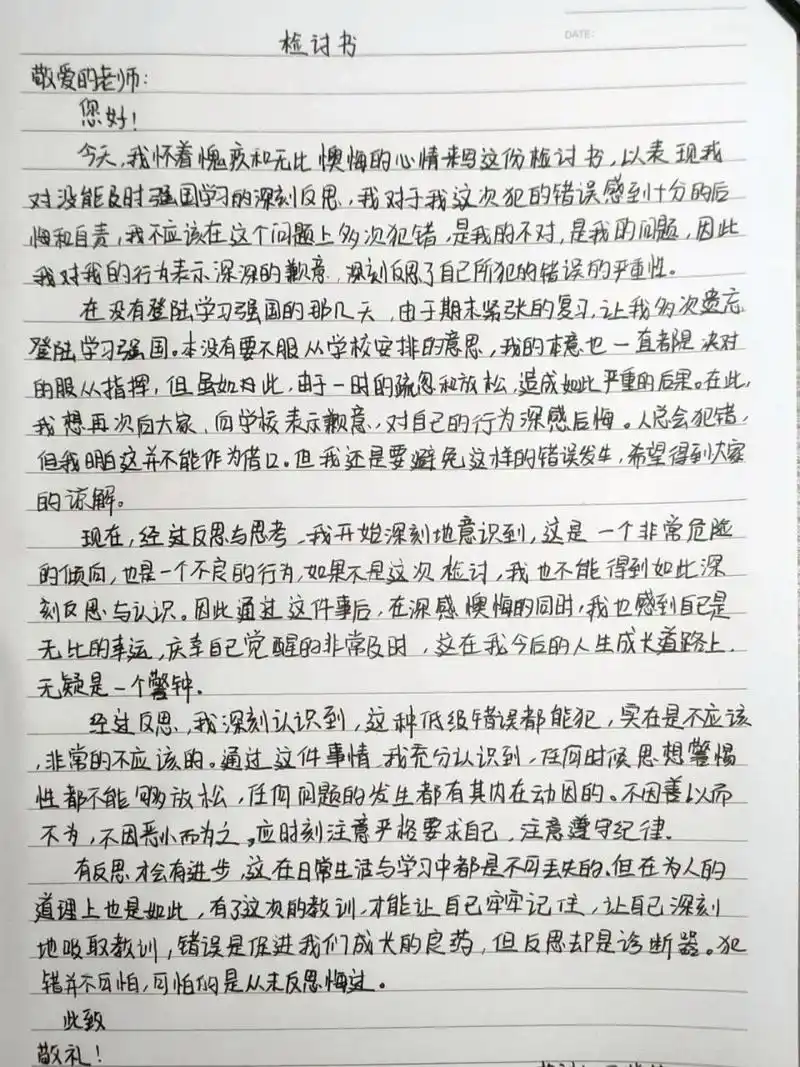 DATE:
检讨书
敬爱的老师：
您好！
今天，我怀着愧疚和无比懊悔的心情来写这份检讨书，以表现我
对没能及时强国学习的深刻反思，我对于我这次犯的错误感到十分的后
悔和自责，我不应该在这个问题上多次犯错，是我的不对，是我的问题，因此
我对我的行为表示深深的歉意，深刻反思了自己所犯的错误的严重性。
在没有登陆学习强国的那几天，由于期末紧张的复习，让我多次遗忘
登陆学习强国。本没有要不服从学校安排的意思，我的本意也一直都是决对
的服从指挥，但虽如此，由于一时的疏忽和放松，造成如此严重的后果。在此，
我想再次向大家、向学校表示歉意，对自己的行为深感后悔。人总会犯错，
但我明白这并不能作为借口。但我还是要避免这样的错误发生，希望得到大家
的谅解。
现在，经过反思与思考，我开始深刻地意识到，这是一个非常危险
的倾向，也是一个不良的行为，如果不是这次检讨，我也不能得到如此深
刻反思与认识。因此通过这件事后，在深感懊悔的同时，我也感到自己是
无比的幸运，庆幸自己觉醒的非常及时，这在我今后的人生成长道路上，
无疑是一个警钟。
经过反思，我深刻认识到，这种低级错误都能犯，实在是不应该
，非常的不应该的。通过这件事情，我充分认识到，任何时候思想警惕
性都不能够放松，任何问题的发生都有其内在动因的。不因善小而
不为，不因恶小而为之，应时刻注意严格要求自己，注意遵守纪律。
有反思才会有进步，这在日常生活与学习中都是不可丢失的。但在为人的
道理上也是如此，有了这次的教训，才能让自己牢牢记住，让自己深刻
地吸取教训，错误是促进我们成长的良药，但反思却是诊断器。犯
错并不可怕，可怕的是从未反思悔过。
此致
敬礼！